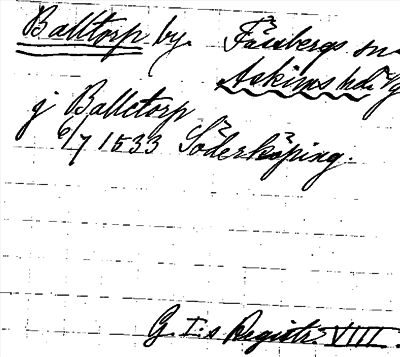 Balltorp by. Fässbergs sn
Askims hd. Vg
j Balletorp
6/7 1533 Söderköping.
G. I:s Registr. VIII.